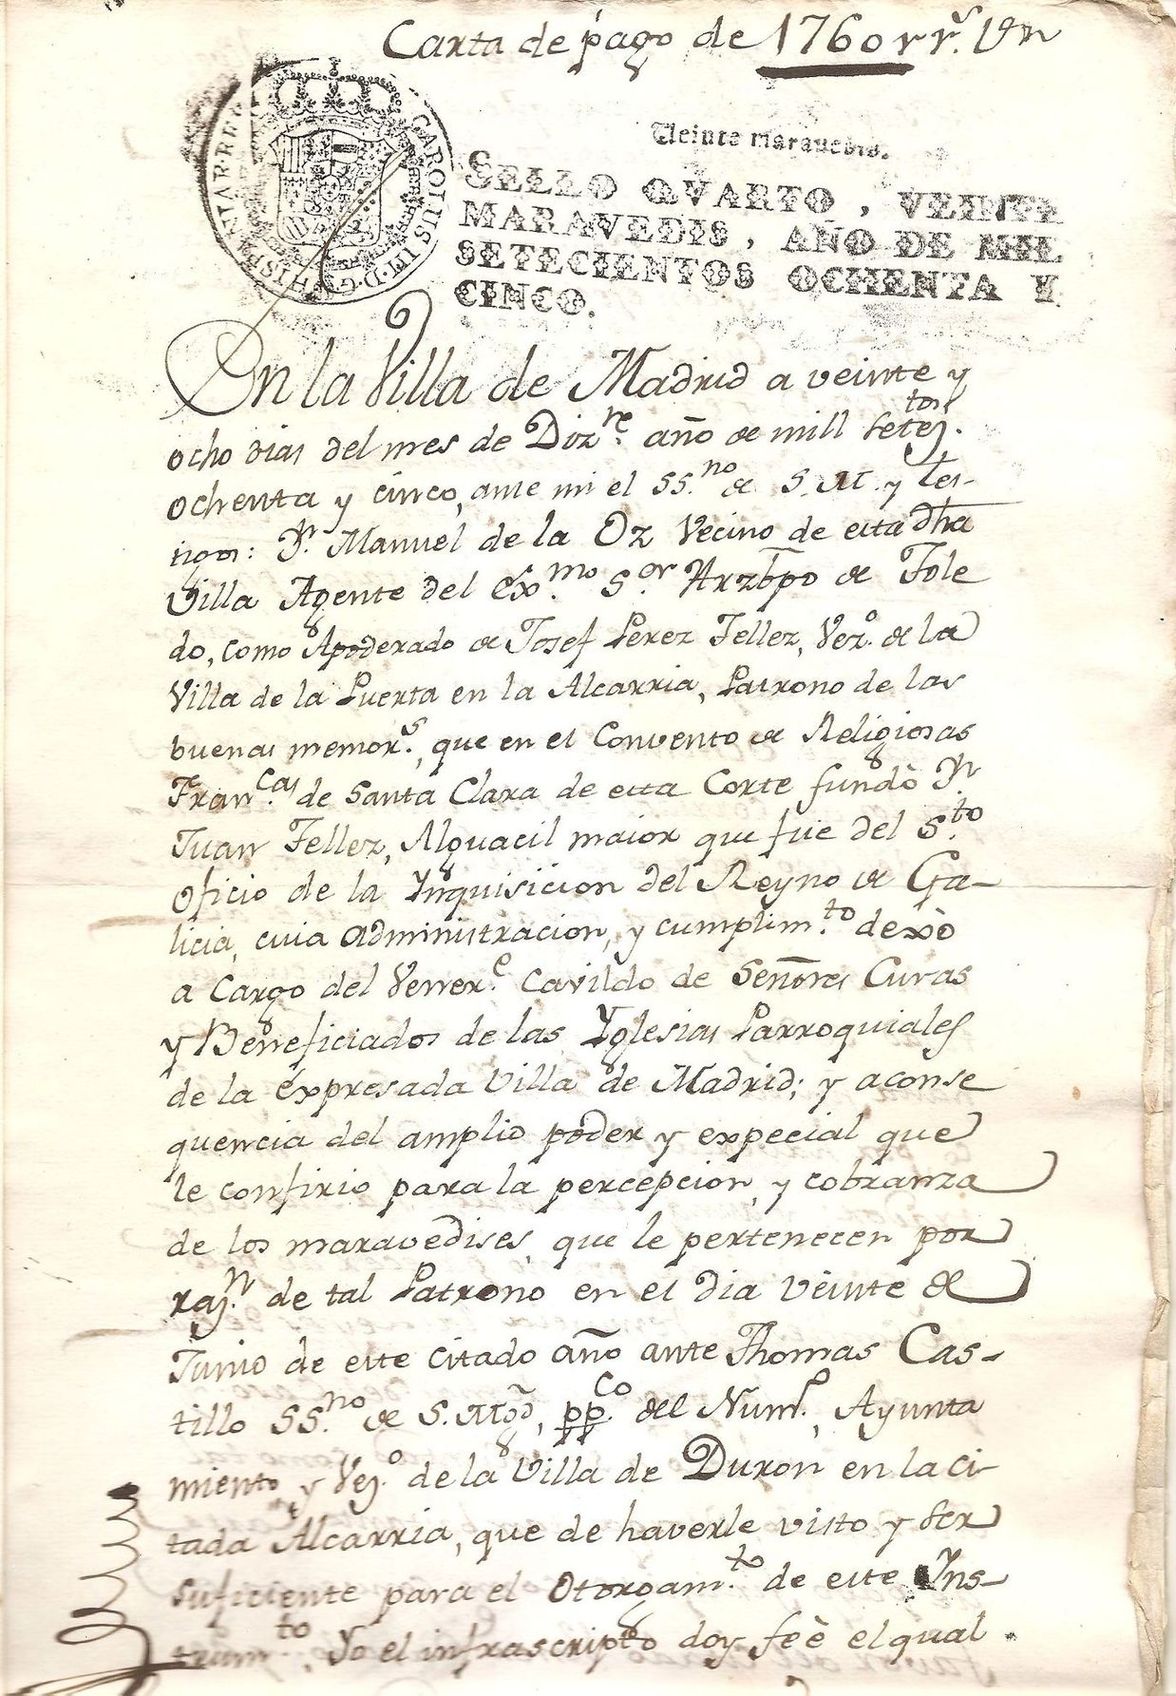 Carta de pago de 1760 rr.s Vn
CAROLUS III D.G. HISPANIAR REX
Veinte maravedis.
SELLO QVARTO, VEINTE
MARAVEDIS, AÑO DE MIL
SETECIENTOS OCHENTA Y
CINCO.
En la Villa de Madrid a veinte y
ocho dias del mes de Diz.re año de mill setez.tos
ochenta y cinco, ante mi el SS.no de S. M. y tes-
tigos: D.n Manuel de la Oz Vecino de esta dha
Villa Agente del Ex.mo S.or Arzbpo de Tole
do, como Apoderado de Josef Perez Tellez, Vez.o de la
Villa de la Puerta en la Alcarria, Patrono de las
buenas memor.s, que en el Convento de Religiosas
Fran.cas de Santa Clara de esta Corte fundò D.n
Juan Tellez, Alguacil maior que fue del S.to
Oficio de la Inquisicion del Reyno de Ga-
licia, cuia administracion, y cumplim.to dexò
a cargo del Vener.e Cavildo de Señores Curas
y Beneficiados de las Yglesias Parroquiales
de la expresada Villa de Madrid; y a conse
quencia del amplio poder y expecial que
le confirio para la percepcion, y cobranza
de los maravedises, que le pertenecen por
raz.n de tal Patrono en el dia veinte de
Junio de este citado año ante Thomas Cas-
tillo SS.no de S. Mgd, pp.co del Num.o, Ayunta
miento y Vez.o de la Villa de Duron en la ci-
tada Alcarria, que de haverle visto y ser
suficiente para el otorgam.to de este Ins-
trum.to, Yo el infrascripto doy feè el qual.